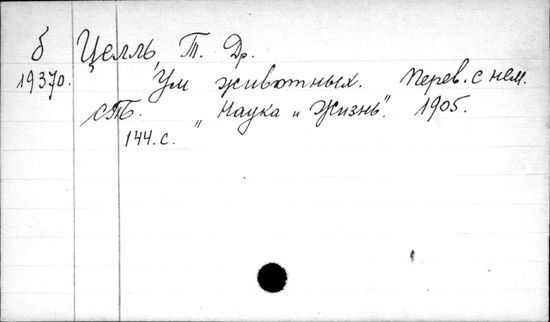 б Целль, Т. Др.
19370. Ум животных. Перев. с нем.
СПб. „Наука и Жизнь". 1905.
144.с.